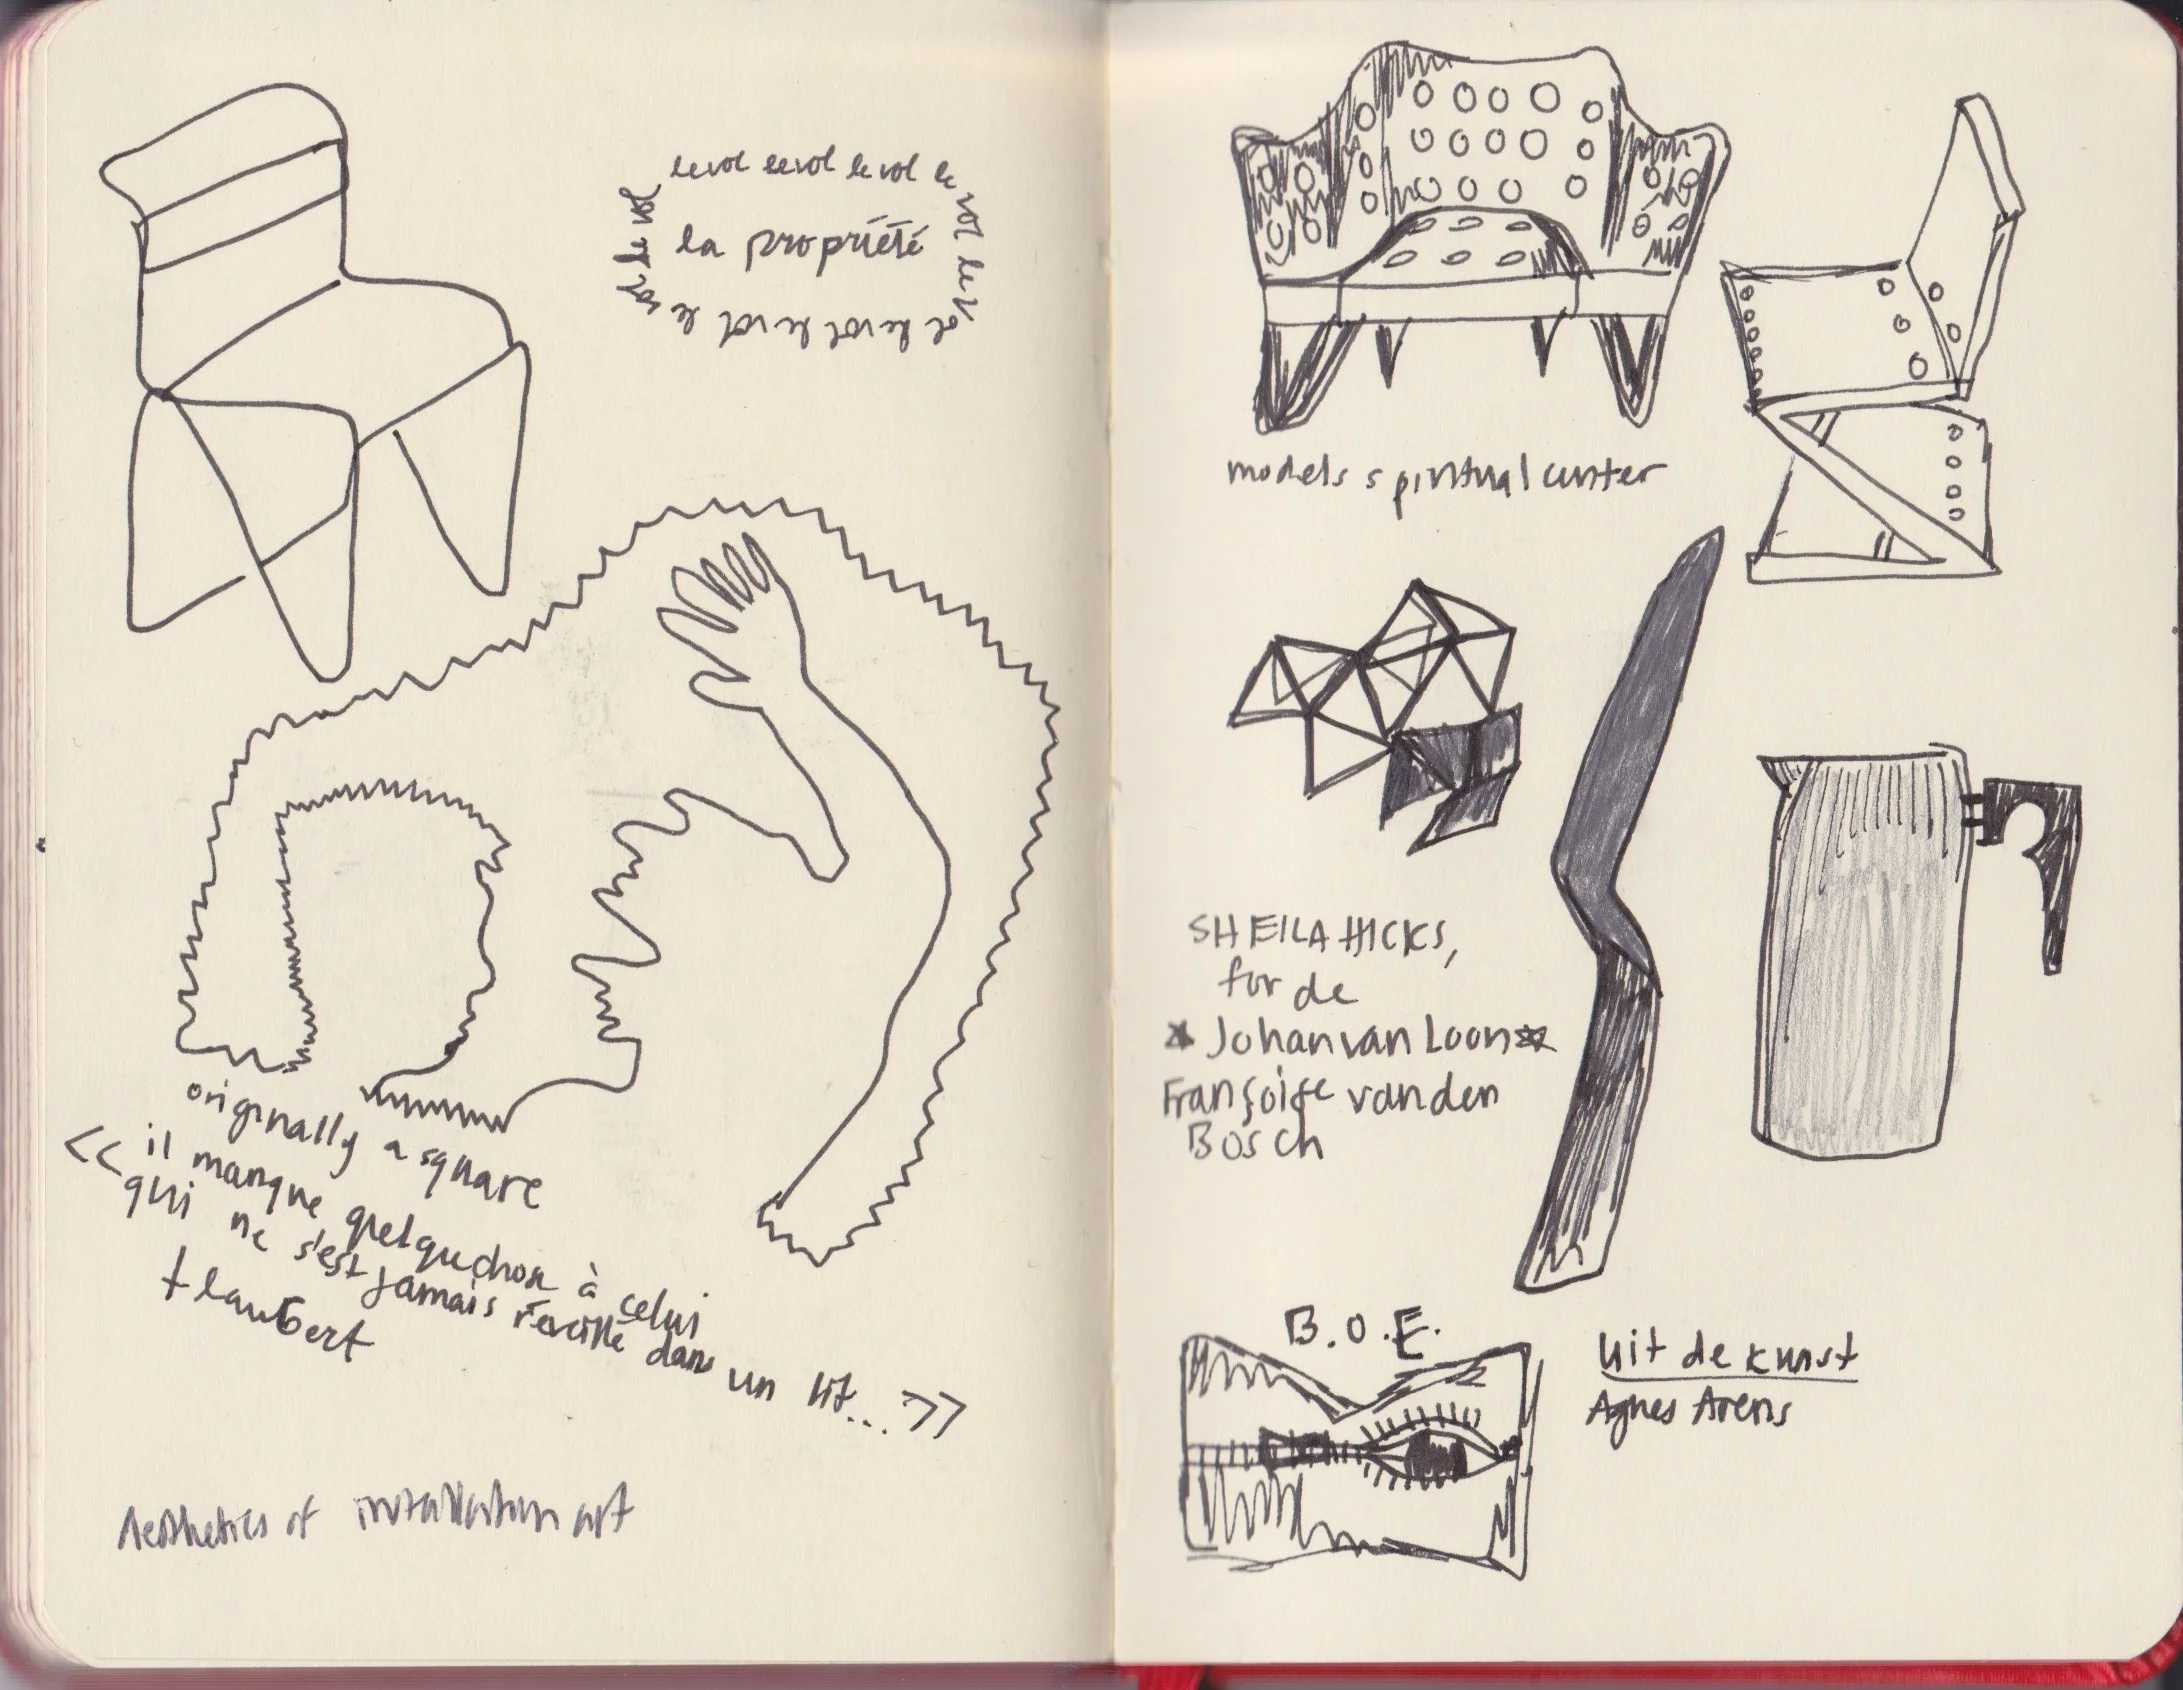 le vol le vol le vol le vol le vol le vol le vol le vol le vol
la propriété
originally a square
<< il manque quelquechose à celui
qui ne s'est jamais réveillé dans un lit... >>
flaubert
Aesthetics of installation art
models spiritual center
SHEILA HICKS,
for de
Johan van Loon
Françoise van den
Bosch
B.O.E.
uit de kunst
Agnes Arens